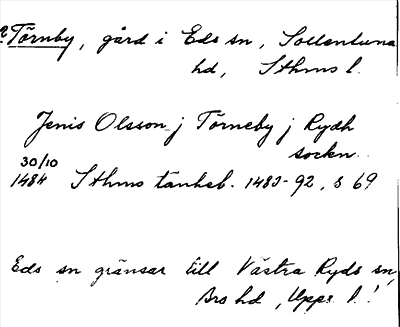 ? Törnby, gård i Eds sn, Sollentuna
hd, Sthms l.
Jenis Olsson j Törneby j Rydh
socken.
30/10
1484 Sthms tänkeb. 1483-92, s 69
Eds sn gränsar till Västra Ryds sn,
Bro hd, Upps l.!